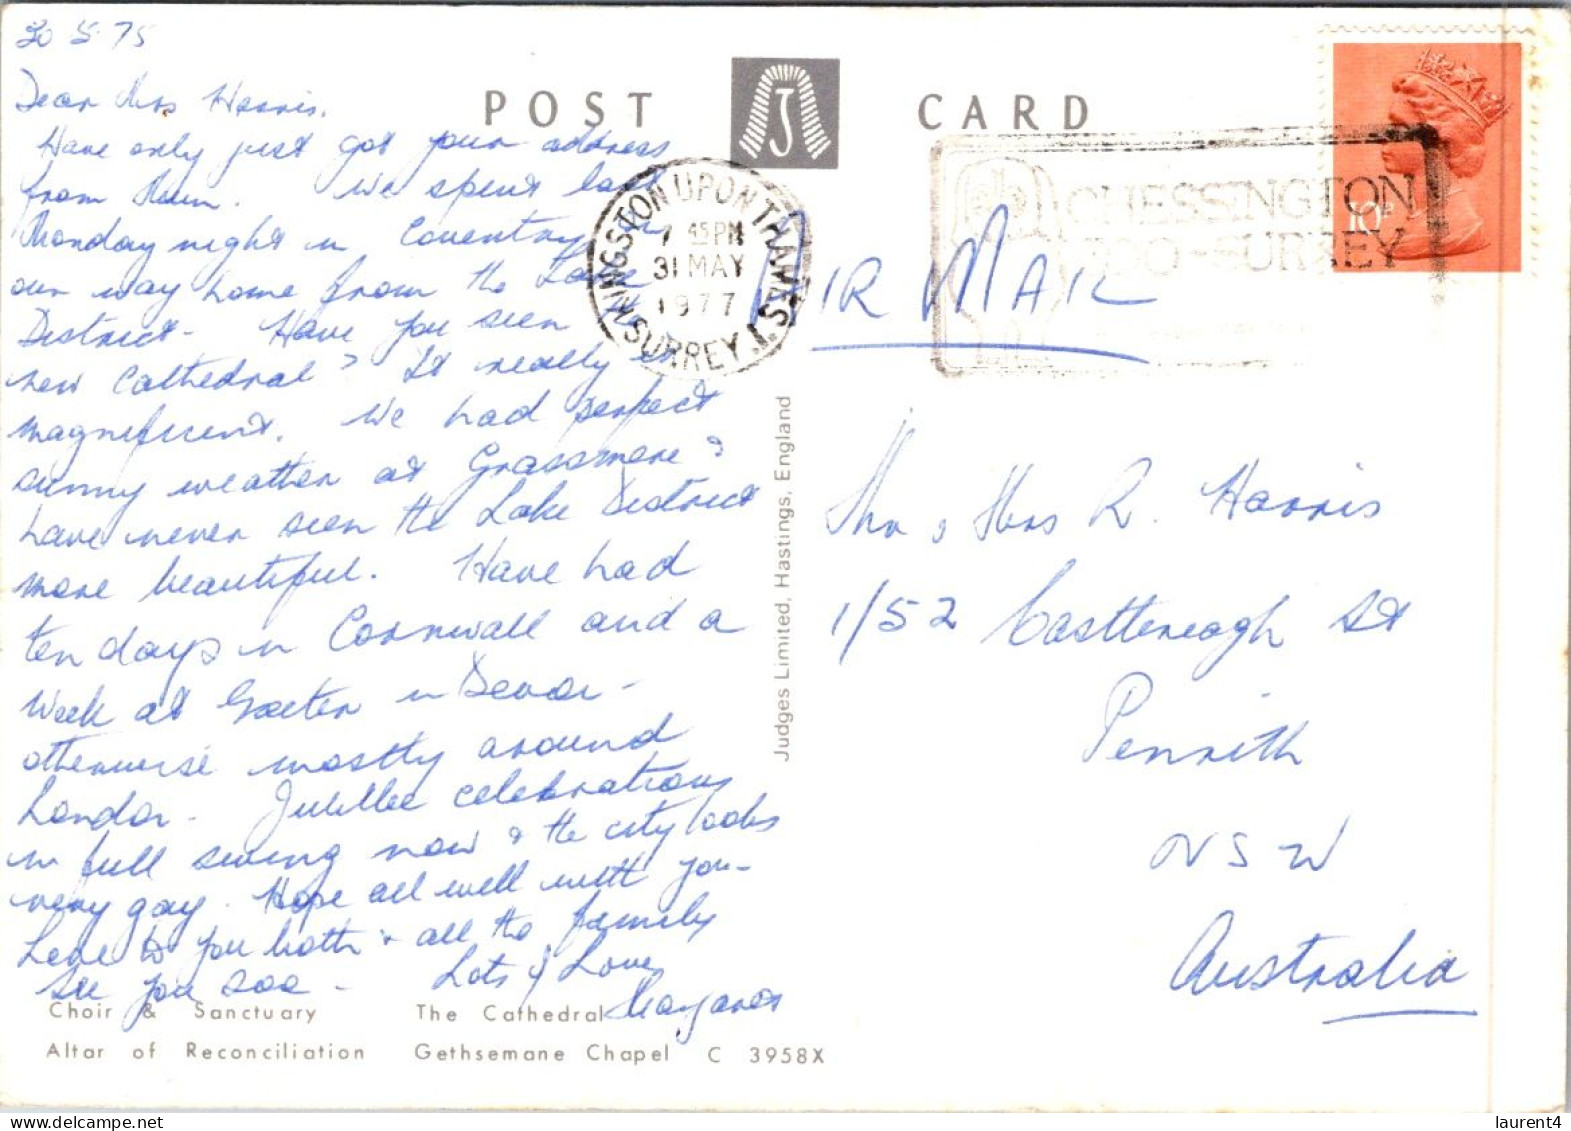 30 5 75
Dear Mrs Harris.
Have only just got your address
from Mum. We spent last
Monday night in Coventry on
our way home from the Lake
District - Have you seen the
new Cathedral? It really is
magnificent. We had perfect
sunny weather at Grassmere &
have never seen the Lake District
more beautiful. Have had
ten days in Cornwall and a
week at Exeter in Devon -
otherwise mostly around
London - Jubillee celebrations
in full swing now & the city looks
very gay. Hope all well with you -
Love to you both & all the family
See you soo -
Lots of Love
Margaret
POST CARD
J
KINGSTON UPON THAMES
SURREY
45 PM
31 MAY
1977
CHESSINGTON
ZOO-SURREY
10P
AIR MAIL
Judges Limited, Hastings, England
Mr & Mrs R. Harris
1/52 Castlereagh St
Penrith
NSW
Australia
Choir & Sanctuary The Cathedral
Altar of Reconciliation Gethsemane Chapel C 3958X
laurent4